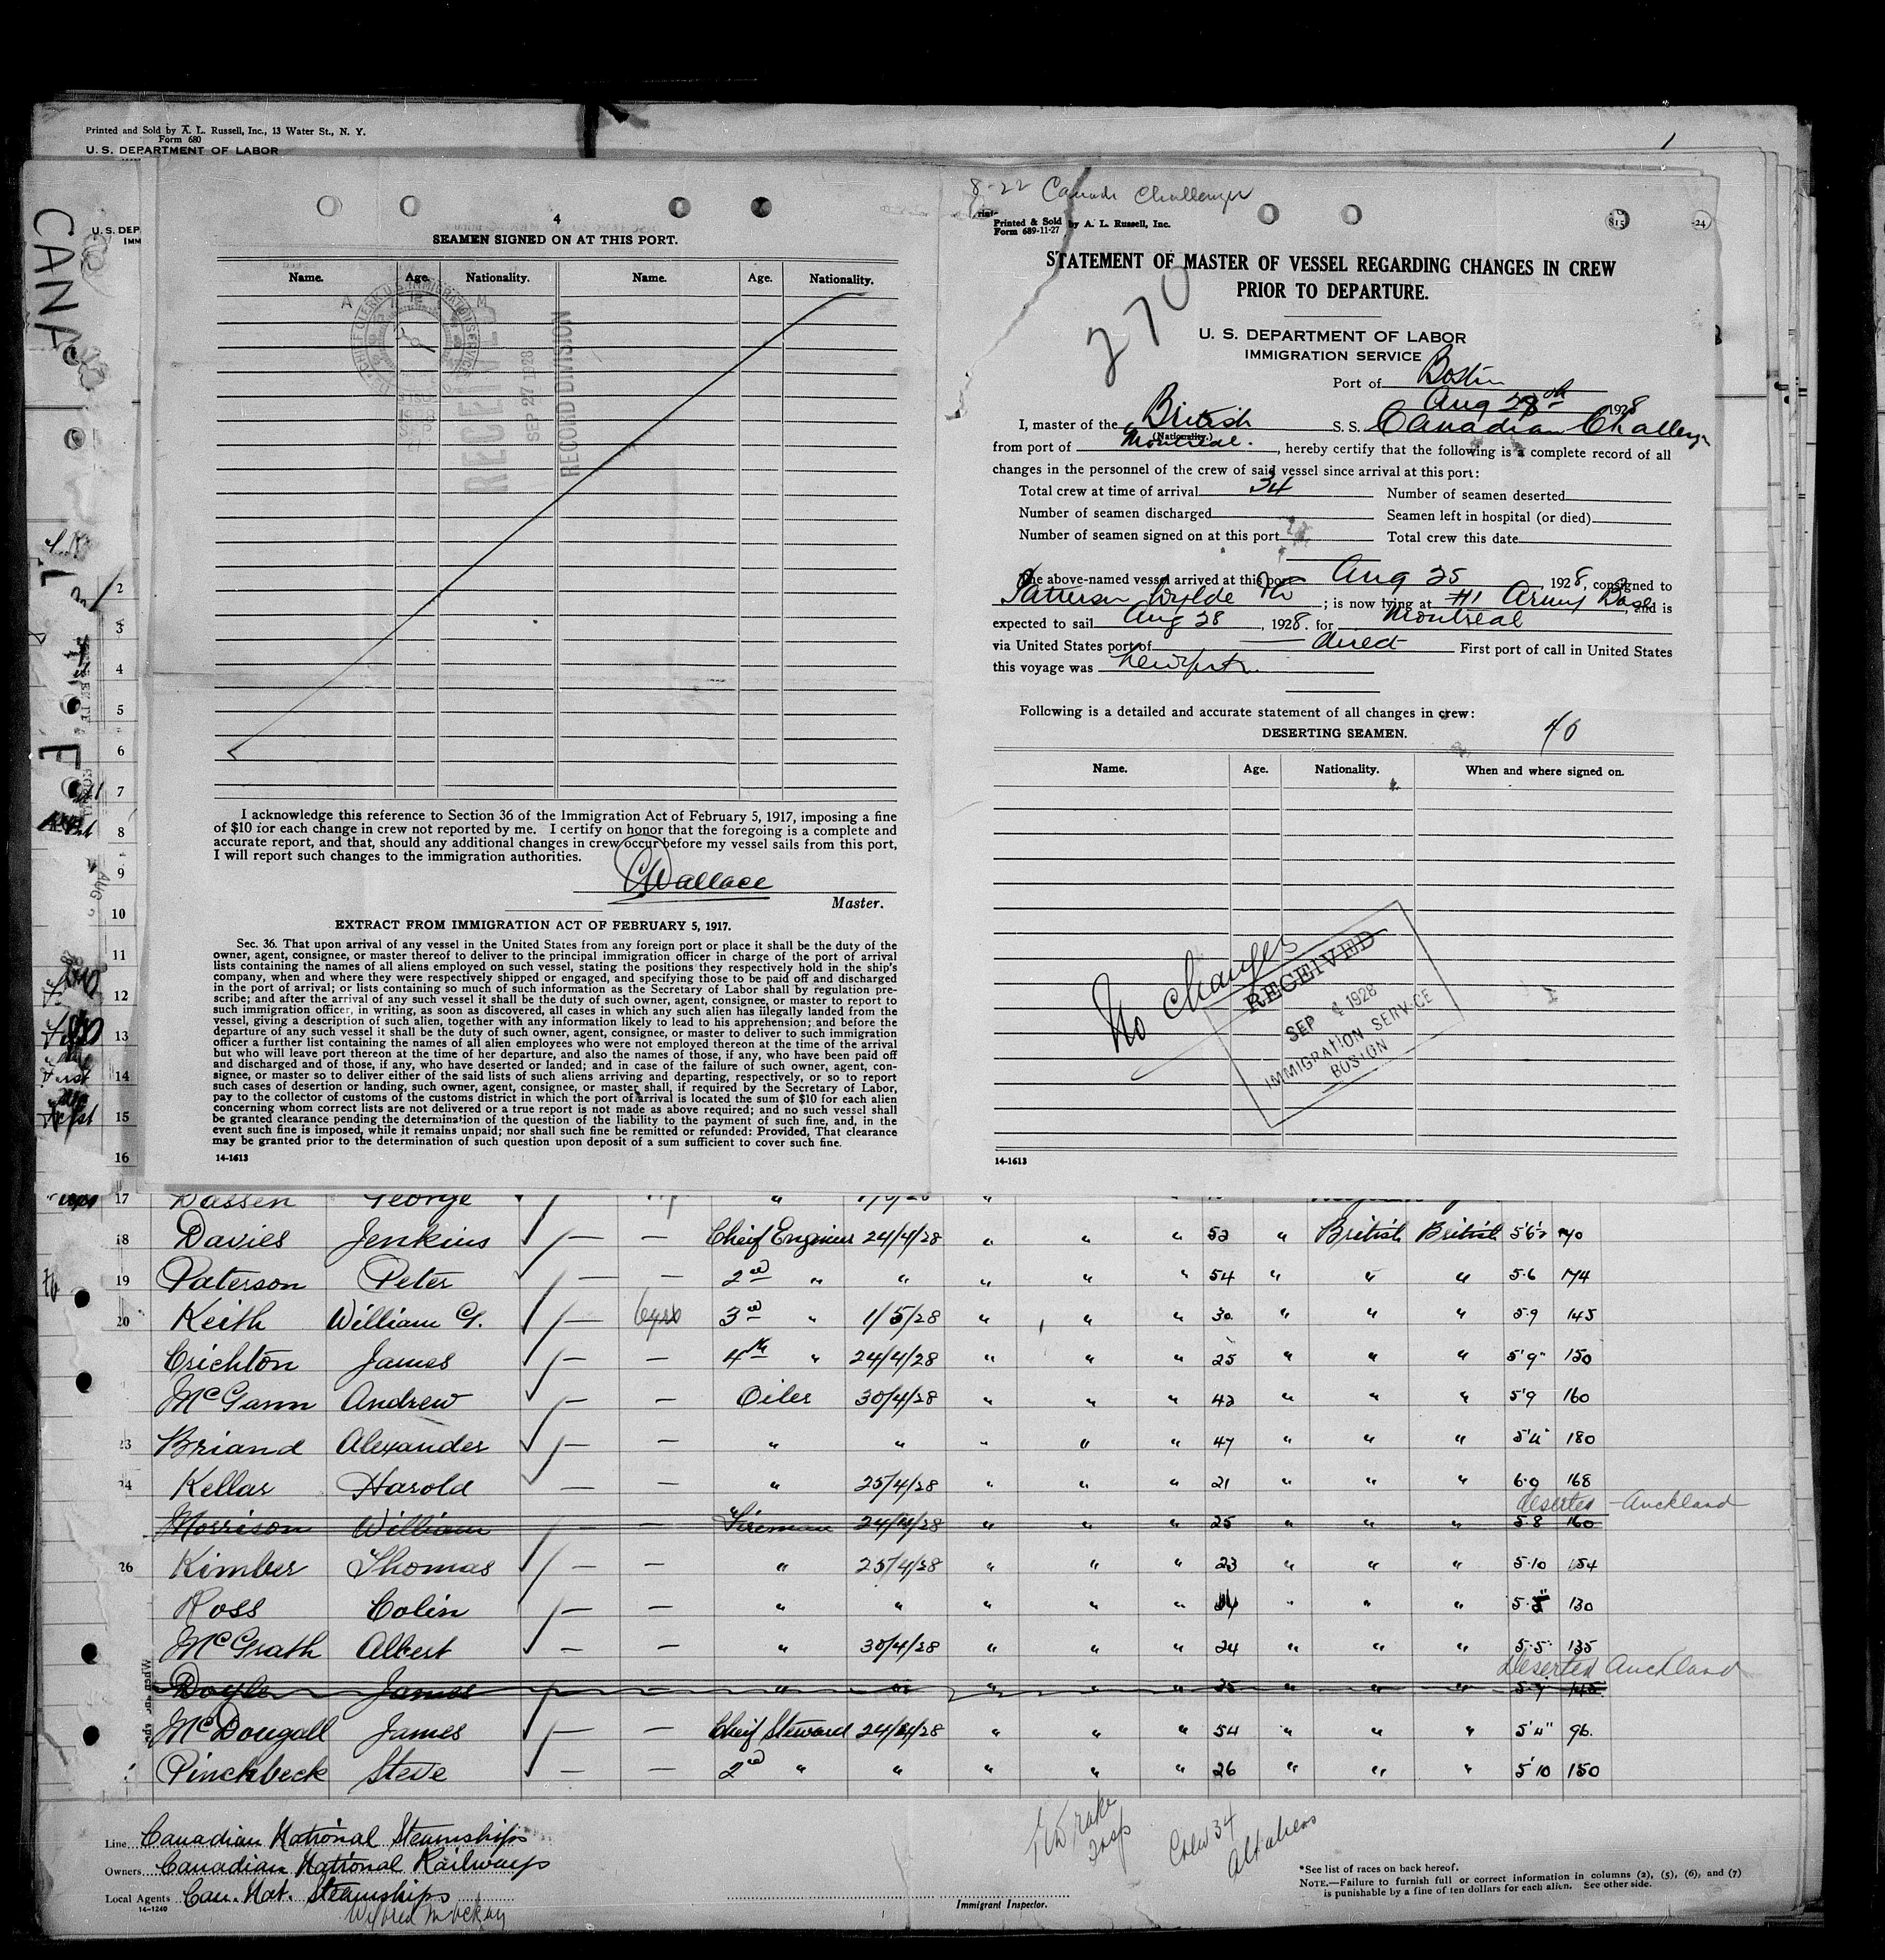 Printed and Sold by A. L. Russell, Inc., 13 Water St., N. Y.
Form 680
U. S. DEPARTMENT OF LABOR
CANA
U. S. DEP
IMM
4
SEAMEN SIGNED ON AT THIS PORT.
Name. Age. Nationality. Name. Age. Nationality.
RECEIVED
SEP 27 1928
RECORD DIVISION
I acknowledge this reference to Section 36 of the Immigration Act of February 5, 1917, imposing a fine
of $10 for each change in crew not reported by me. I certify on honor that the foregoing is a complete and
accurate report, and that, should any additional changes in crew occur before my vessel sails from this port,
I will report such changes to the immigration authorities.
CWallace
Master.
EXTRACT FROM IMMIGRATION ACT OF FEBRUARY 5, 1917.
Sec. 36. That upon arrival of any vessel in the United States from any foreign port or place it shall be the duty of the
owner, agent, consignee, or master thereof to deliver to the principal immigration officer in charge of the port of arrival
lists containing the names of all aliens employed on such vessel, stating the positions they respectively hold in the ship's
company, when and where they were respectively shipped or engaged, and specifying those to be paid off and discharged
in the port of arrival; or lists containing so much of such information as the Secretary of Labor shall by regulation pre-
scribe; and after the arrival of any such vessel it shall be the duty of such owner, agent, consignee, or master to report to
such immigration officer, in writing, as soon as discovered, all cases in which any such alien has illegally landed from the
vessel, giving a description of such alien, together with any information likely to lead to his apprehension; and before the
departure of any such vessel it shall be the duty of such owner, agent, consignee, or master to deliver to such immigration
officer a further list containing the names of all alien employees who were not employed thereon at the time of the arrival
but who will leave port thereon at the time of her departure, and also the names of those, if any, who have been paid off
and discharged and of those, if any, who have deserted or landed; and in case of the failure of such owner, agent, con-
signee, or master so to deliver either of the said lists of such aliens arriving and departing, respectively, or so to report
such cases of desertion or landing, such owner, agent, consignee, or master shall, if required by the Secretary of Labor,
pay to the collector of customs of the customs district in which the port of arrival is located the sum of $10 for each alien
concerning whom correct lists are not delivered or a true report is not made as above required; and no such vessel shall
be granted clearance pending the determination of the question of the liability to the payment of such fine, and, in the
event such fine is imposed, while it remains unpaid; nor shall such fine be remitted or refunded: Provided, That clearance
may be granted prior to the determination of such question upon deposit of a sum sufficient to cover such fine.
14-1613
8-22 Canada Challenger
Printed & Sold by A. L. Russell, Inc.
Form 689-11-27
815 -24
STATEMENT OF MASTER OF VESSEL REGARDING CHANGES IN CREW
PRIOR TO DEPARTURE.
270
U. S. DEPARTMENT OF LABOR
IMMIGRATION SERVICE
Port of Boston
Aug 28th 1928
I, master of the British S. S. Canadian Challenger
(Nationality.)
from port of Montreal., hereby certify that the following is a complete record of all
changes in the personnel of the crew of said vessel since arrival at this port:
Total crew at time of arrival 34 Number of seamen deserted
Number of seamen discharged Seamen left in hospital (or died)
Number of seamen signed on at this port Total crew this date
The above-named vessel arrived at this port Aug 25, 1928, consigned to
Patterson Wylde Co; is now lying at #1 Army Base, and is
expected to sail Aug 28, 1928. for Montreal
via United States port of direct First port of call in United States
this voyage was Newport
Following is a detailed and accurate statement of all changes in crew:
DESERTING SEAMEN.
40
Name. Age. Nationality. When and where signed on.
No changes
RECEIVED
SEP 4 1928
IMMIGRATION SERVICE
BOSTON
14-1613
2
3
4
5
6
7
8
9
10
11
12
13
14
15
16
17 Dassen George "
18 Davies Jenkins — — Cheif Engineer 24/4/28 " " " 52 " British British 5'6½
19 Paterson Peter — — 2nd " " " " " 54 " " " 5.6 174
20 Keith William G. — 6yrs 3rd " 1/5/28 " " " 30 " " " 5.9 145
Crichton James — — 4th " 24/4/28 " " " 25 " " " 5'9" 150
McGann Andrew — — Oiler 30/4/28 " " " 42 " " " 5'9 160
23 Briand Alexander — — " " " " " 47 " " " 5'4" 180
24 Kellar Harold — — " 25/4/28 " " " 21 " " " 6.0 168
deserted - Auckland
Morrison William — — Fireman 24/4/28 " " " 25 " " " 5.8 160
26 Kimber Thomas — — " 25/4/28 " " " 23 " " " 5.10 154
Ross Colin — — " " " " " " " " 130
McGrath Albert — — " 30/4/28 " " " 24 " " " 5.5 135
Deserted Auckland
Doyle James " " " " " 25 " " " 5.9 145
McDougall James — — Cheif Steward 24/4/28 " " " 54 " " " 5'4" 96.
Pinchbeck Steve — — 2nd " " " " " 26 " " " 5'10 150
Line Canadian National Steamships
Owners Canadian National Railways
Local Agents Can. Nat. Steamships
14-1240
Crew 34
All aliens
Immigrant Inspector.
*See list of races on back hereof.
NOTE.—Failure to furnish full or correct information in columns (2), (5), (6), and (7)
is punishable by a fine of ten dollars for each alien. See other side.